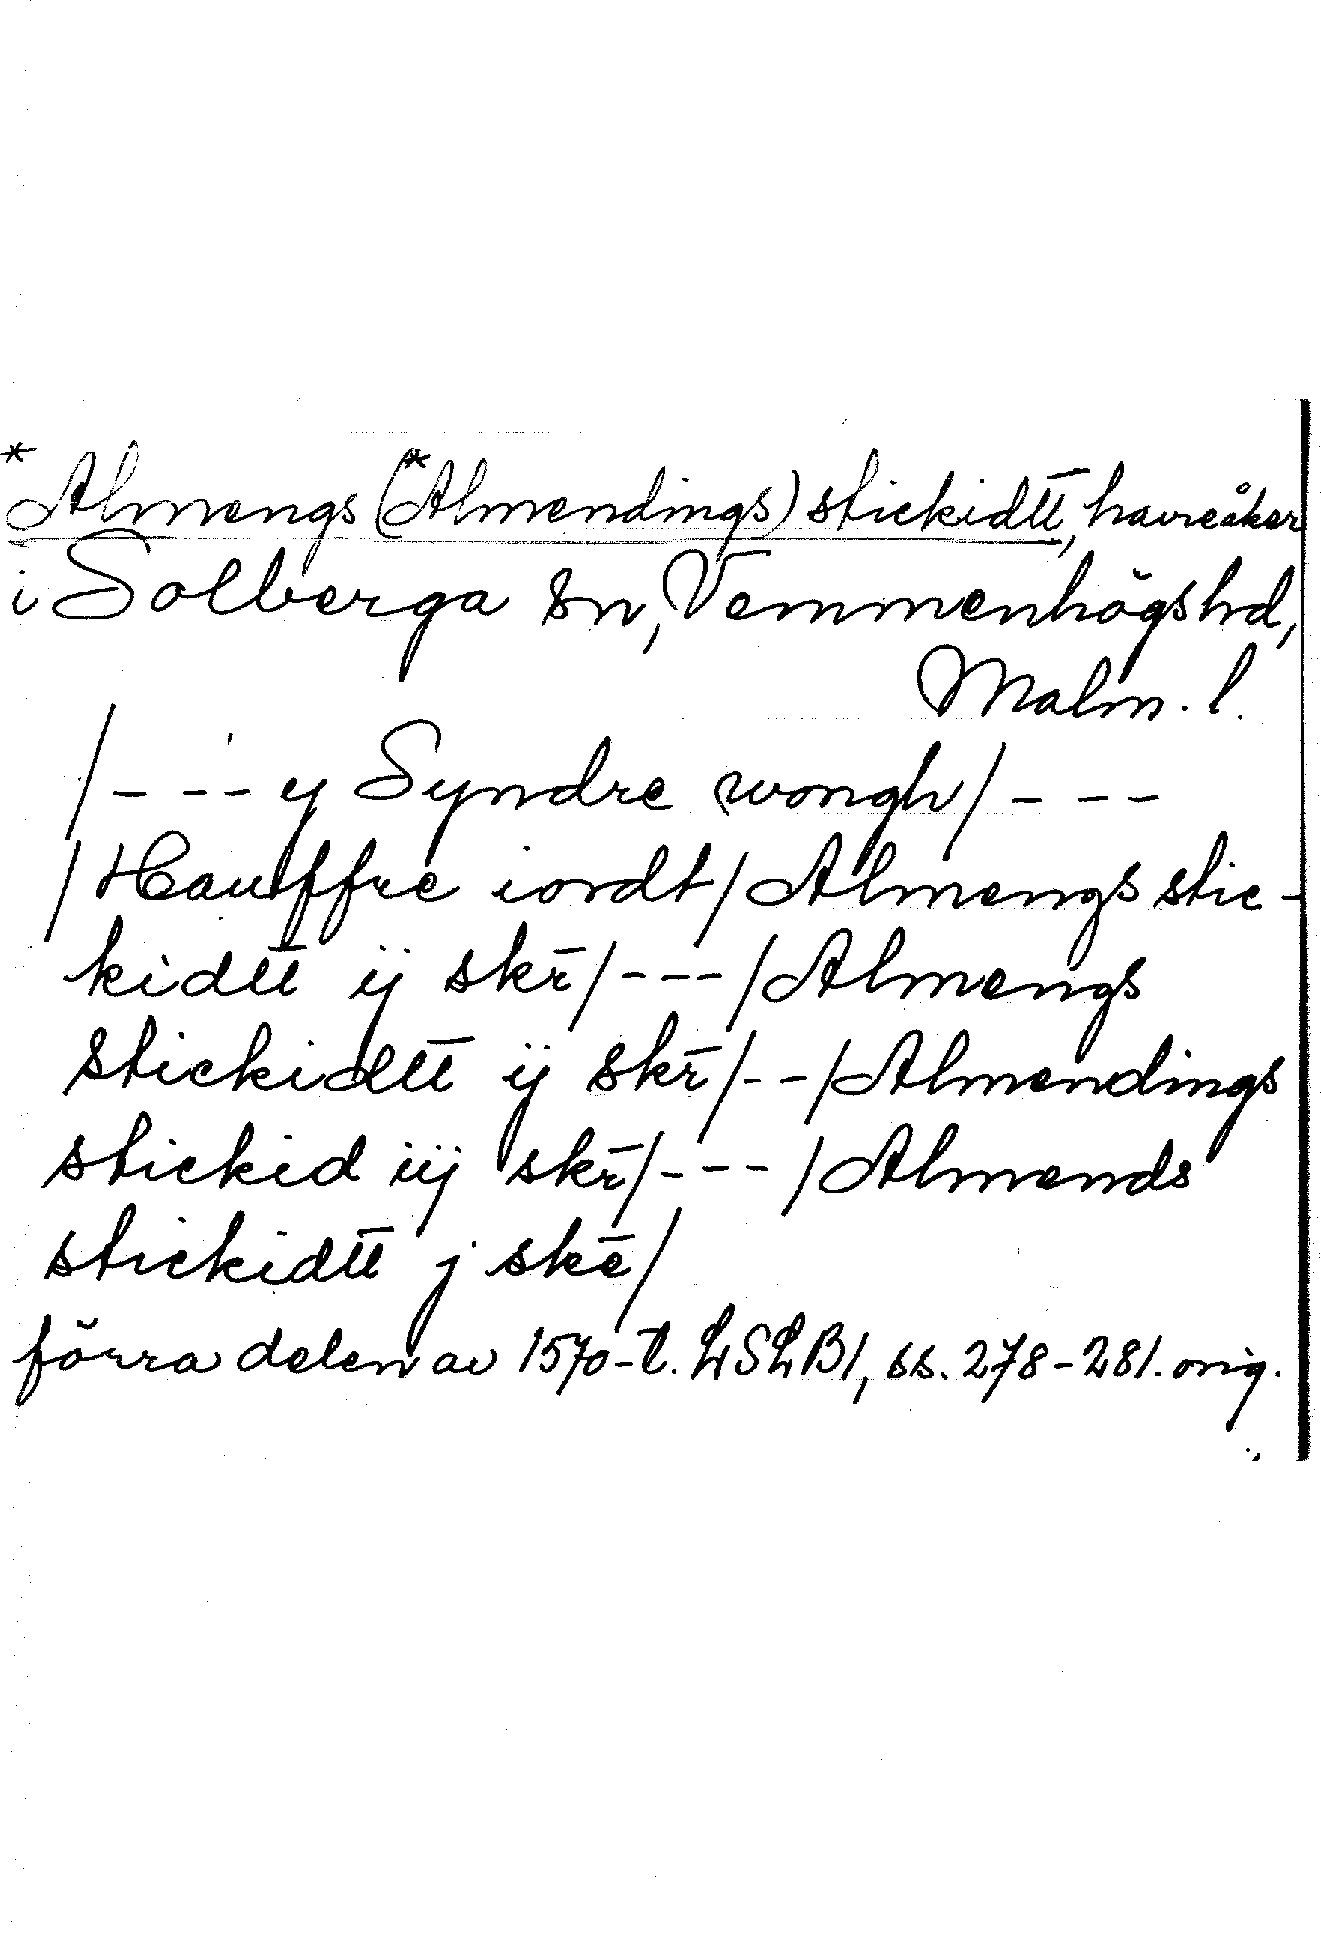 *Almengs (*Almendings) stickidtt, havreåker
i Solberga sn, Vemmenhögs hd,
Malm. l.
/- - - y Syndre wongh/- - -
/Hauffre iordt/Almengs stic-
kidtt ij skr̄/- - -/Almengs
stickidtt ij skr̄/- -/Almendings
stickid iij skr̄/- - -/Almends
stickidtt j skē/
förra delen av 1570-t. LSLB1, ss. 278-281. orig.